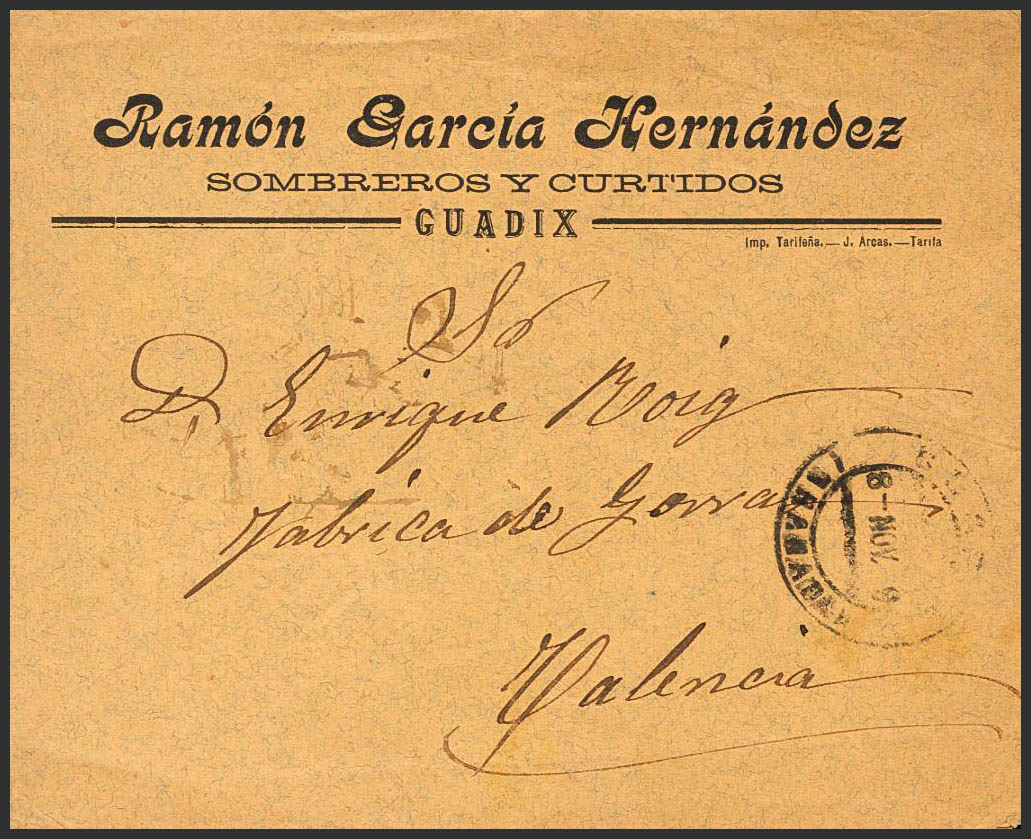 Ramón García Hernández
SOMBREROS Y CURTIDOS
GUADIX
Imp. Tarifeña.—J. Arcas.—Tarifa
Sr
D. Enrique Roig
Fabrica de Gorra
Valencia
8-NOV. 9